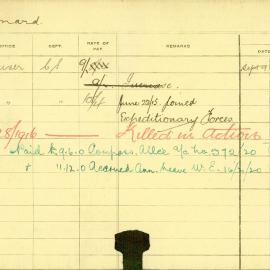 nard
OFFICE DEPT. RATE OF PAY REMARKS DAT
9/- Sept 9
" 9/- Increase.
" 10/- June 22/5. joined
Expeditionary Forces
8/1916 Killed in Action
Paid £9.6.0 Compass. Allce
" 11.12.0 Accrued Ann. Leave W.E.